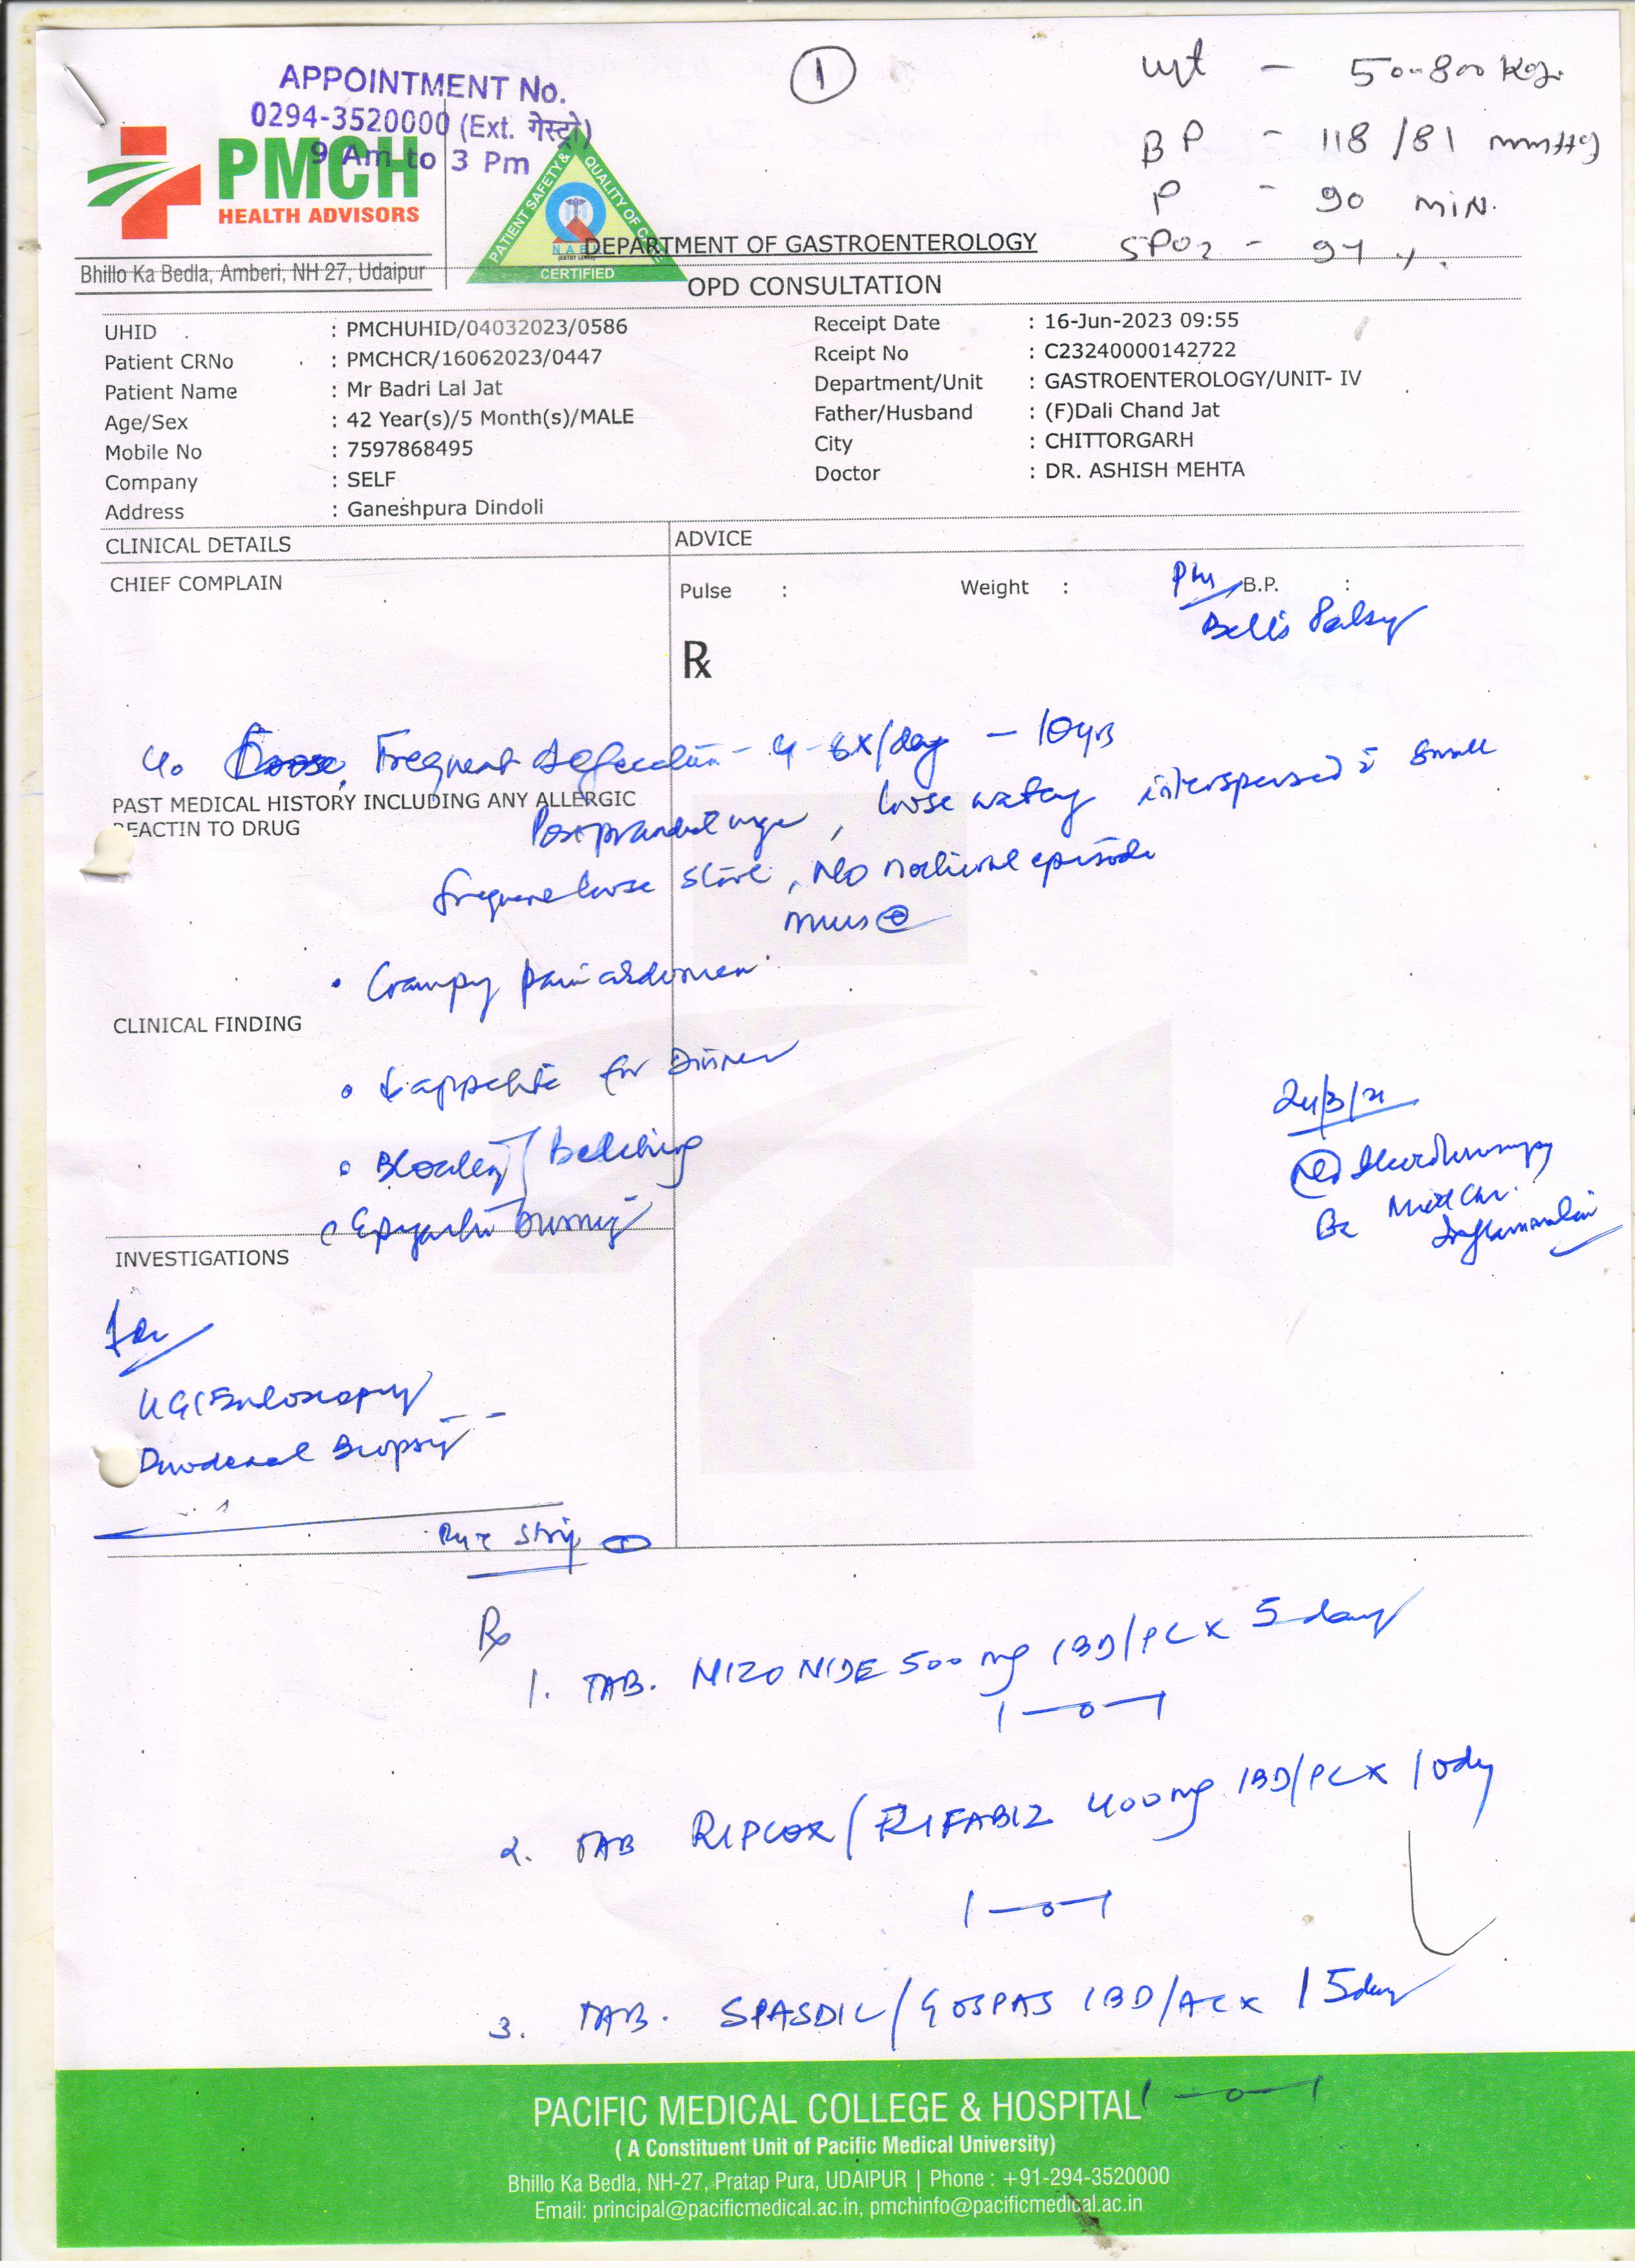 APPOINTMENT No.
0294-3520000 (Ext. गेस्ट्रो)
9 Am to 3 Pm
1
Wt - 50.800 Kg.
BP - 118/81 mmHg
P - 90 min.
SPO2 - 97 %.
PMCH
HEALTH ADVISORS
Bhillo Ka Bedla, Amberi, NH 27, Udaipur
PATIENT SAFETY & QUALITY OF CARE
NABH
(ENTRY LEVEL)
CERTIFIED
DEPARTMENT OF GASTROENTEROLOGY
OPD CONSULTATION
UHID : PMCHUHID/04032023/0586
Receipt Date : 16-Jun-2023 09:55
Patient CRNo : PMCHCR/16062023/0447
Rceipt No : C23240000142722
Patient Name : Mr Badri Lal Jat
Department/Unit : GASTROENTEROLOGY/UNIT- IV
Age/Sex : 42 Year(s)/5 Month(s)/MALE
Father/Husband : (F)Dali Chand Jat
Mobile No : 7597868495
City : CHITTORGARH
Company : SELF
Doctor : DR. ASHISH MEHTA
Address : Ganeshpura Dindoli
CLINICAL DETAILS
ADVICE
CHIEF COMPLAIN
Pulse : Weight : B.P. :
Bell's Palsy
Rx
Frequent defecation - 4-6x/day - 10yrs
PAST MEDICAL HISTORY INCLUDING ANY ALLERGIC
REACTIN TO DRUG
Postprandial urge, loose watery interspersed c̄ small
frequent loose stool, No nocturnal episode
mucus ⊕
• Crampy pain abdomen
CLINICAL FINDING
• ↓ appetite for Dinner
• Bloating / Belching
• Epigastric burning
24/3/21
Mild Chr.
Inflammation
INVESTIGATIONS
Adv
UGI Endoscopy
Duodenal Biopsy
Rx
1. TAB. NIZONIDE 500 mg 1BD/PC x 5 days
1-0-1
2. TAB RIPCOX / RIFABIZ 400 mg 1BD/PC x 10 day
1-0-1
3. TAB. SPASDIL / GOSPAS 1BD/AC x 15 days
1-0-1
PACIFIC MEDICAL COLLEGE & HOSPITAL
( A Constituent Unit of Pacific Medical University)
Bhillo Ka Bedla, NH-27, Pratap Pura, UDAIPUR | Phone : +91-294-3520000
Email: principal@pacificmedical.ac.in, pmchinfo@pacificmedical.ac.in